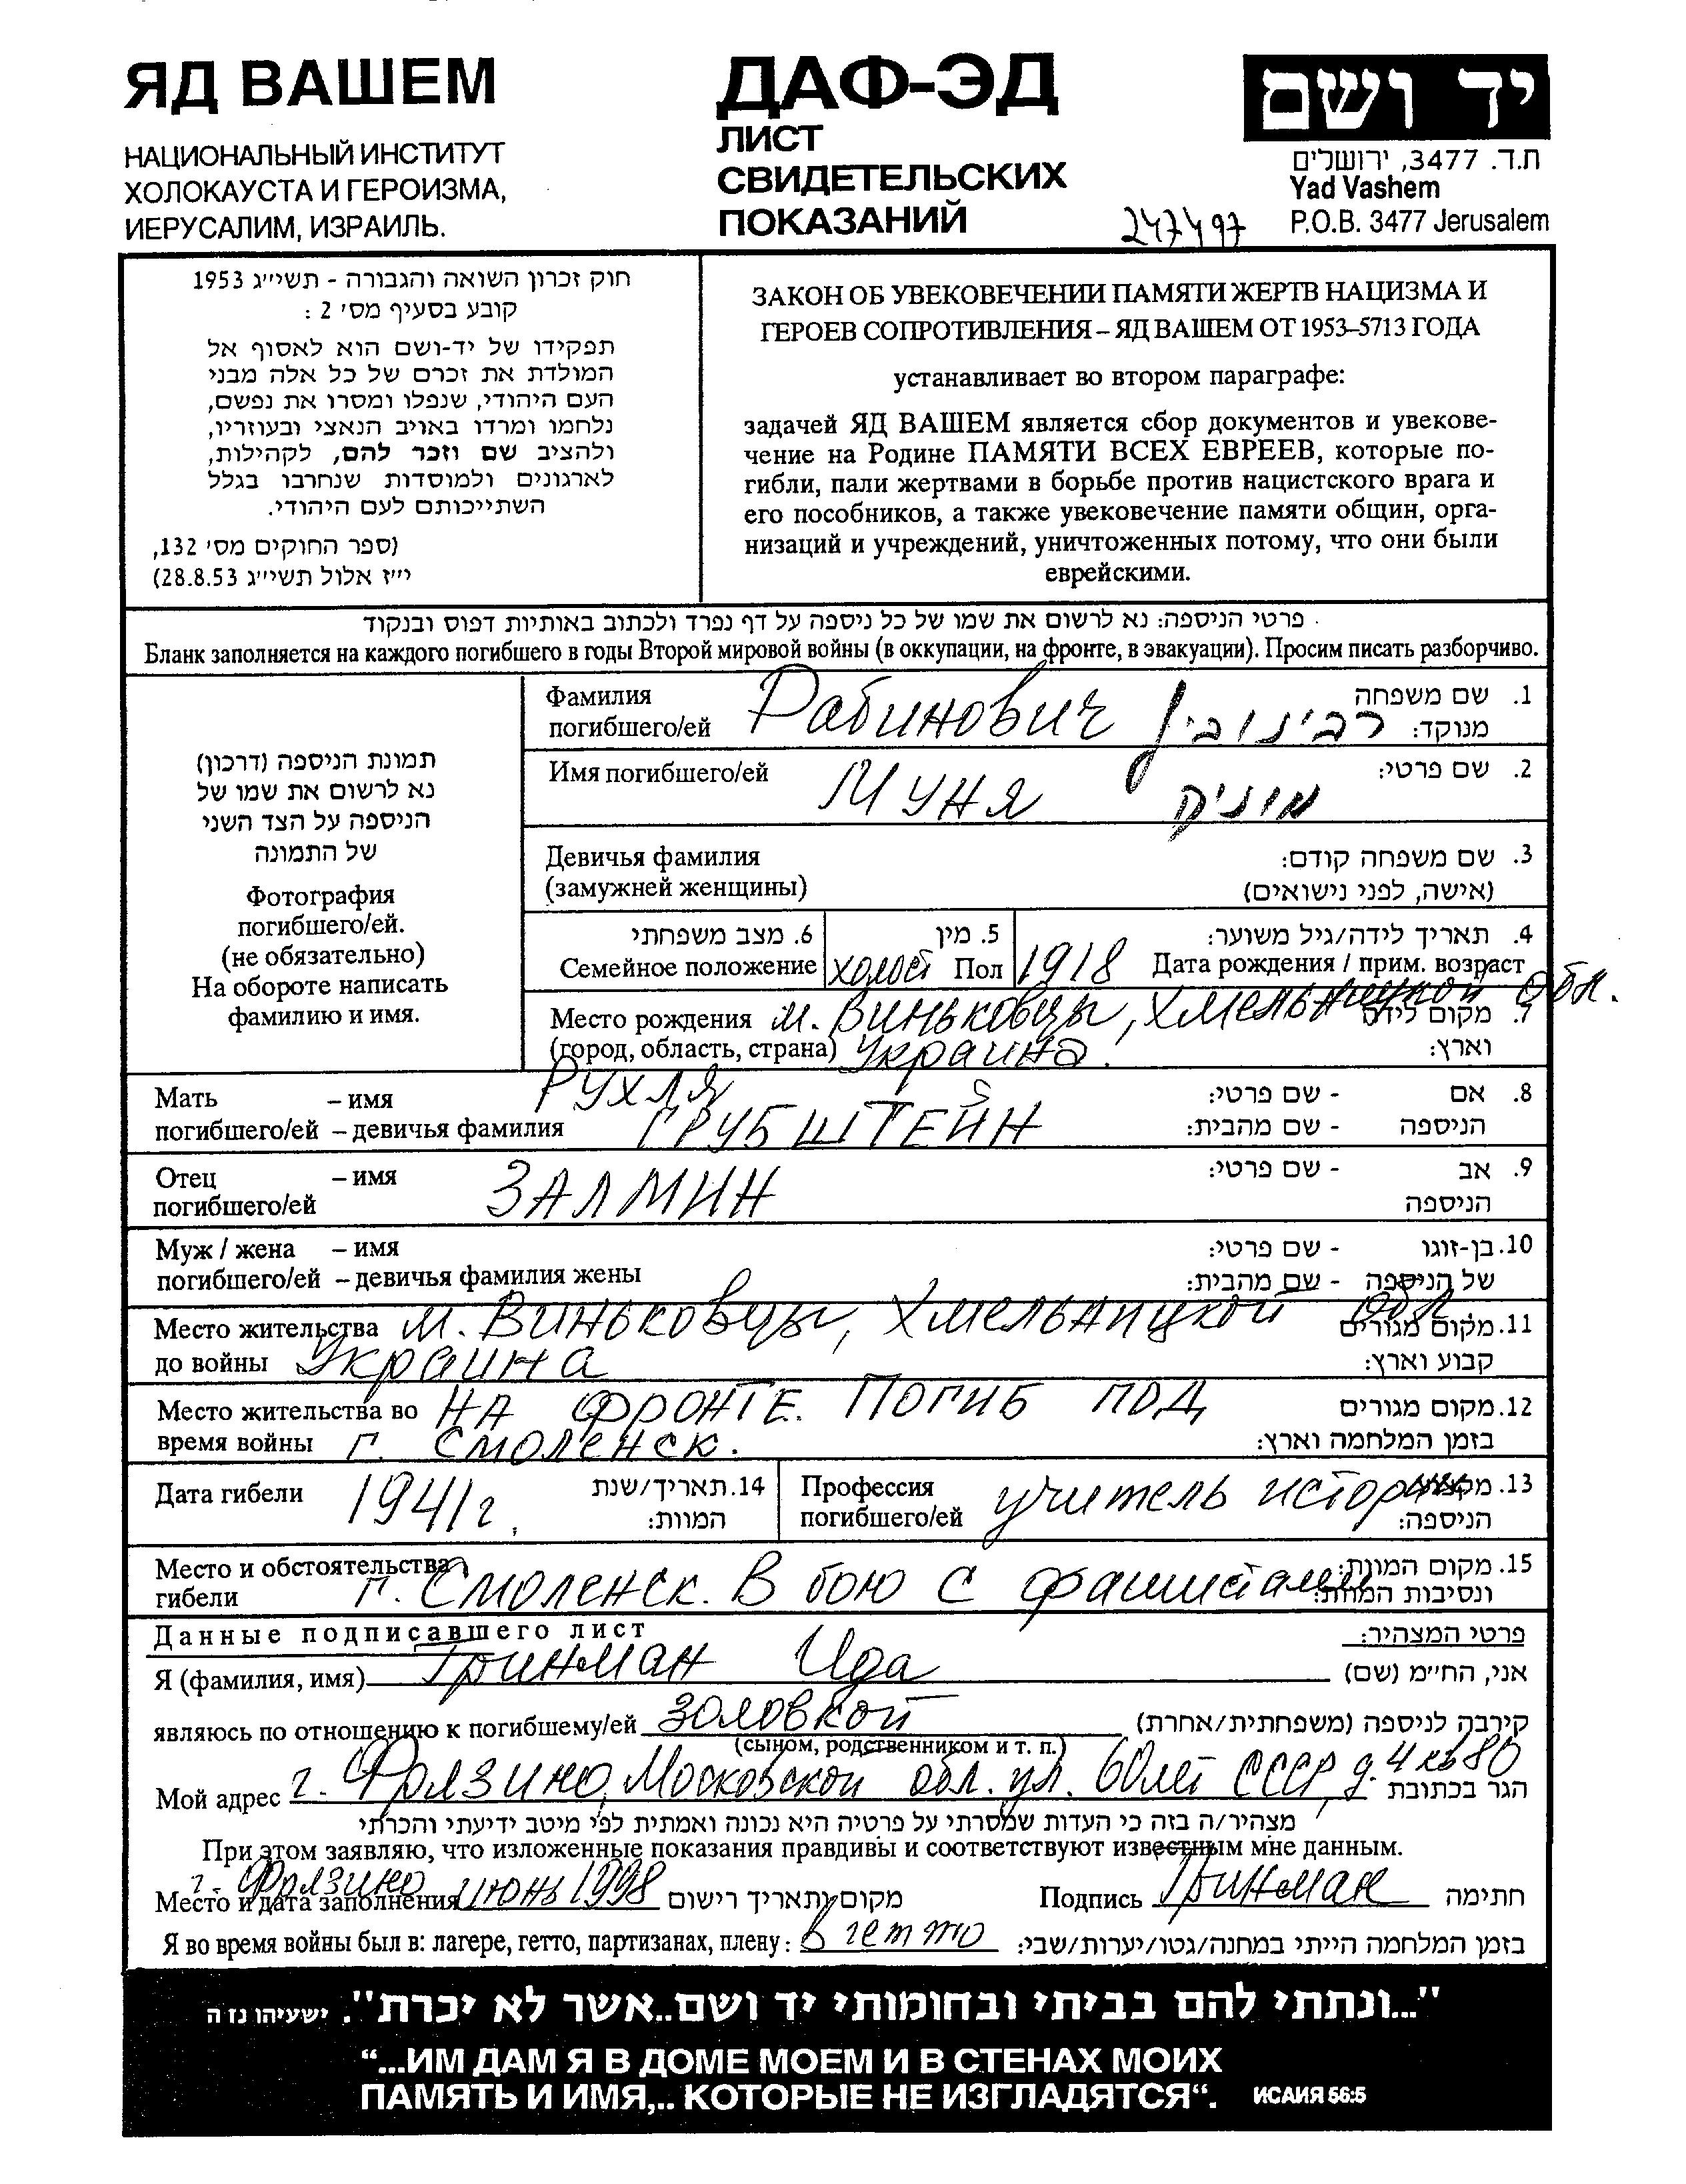 ЯД ВАШЕМ
НАЦИОНАЛЬНЫЙ ИНСТИТУТ
ХОЛОКАУСТА И ГЕРОИЗМА,
ИЕРУСАЛИМ, ИЗРАИЛЬ.
ДАФ-ЭД
ЛИСТ
СВИДЕТЕЛЬСКИХ
ПОКАЗАНИЙ
247497
יד ושם
ת.ד. 3477, ירושלים
Yad Vashem
P.O.B. 3477 Jerusalem
חוק זכרון השואה והגבורה - תשי״ג 1953
קובע בסעיף מס׳ 2 :
תפקידו של יד-ושם הוא לאסוף אל
המולדת את זכרם של כל אלה מבני
העם היהודי, שנפלו ומסרו את נפשם,
נלחמו ומרדו באויב הנאצי ובעוזריו,
ולהציב שם וזכר להם, לקהילות,
לארגונים ולמוסדות שנחרבו בגלל
השתייכותם לעם היהודי.
(ספר החוקים מס׳ 132,
י״ז אלול תשי״ג 28.8.53)
ЗАКОН ОБ УВЕКОВЕЧЕНИИ ПАМЯТИ ЖЕРТВ НАЦИЗМА И
ГЕРОЕВ СОПРОТИВЛЕНИЯ – ЯД ВАШЕМ ОТ 1953–5713 ГОДА
устанавливает во втором параграфе:
задачей ЯД ВАШЕМ является сбор документов и увекове-
чение на Родине ПАМЯТИ ВСЕХ ЕВРЕЕВ, которые по-
гибли, пали жертвами в борьбе против нацистского врага и
его пособников, а также увековечение памяти общин, орга-
низаций и учреждений, уничтоженных потому, что они были
еврейскими.
פרטי הניספה: נא לרשום את שמו של כל ניספה על דף נפרד ולכתוב באותיות דפוס ובנקוד
Бланк заполняется на каждого погибшего в годы Второй мировой войны (в оккупации, на фронте, в эвакуации). Просим писать разборчиво.
תמונת הניספה (דרכון)
נא לרשום את שמו של
הניספה על הצד השני
של התמונה
Фотография
погибшего/ей.
(не обязательно)
На обороте написать
фамилию и имя.
Фамилия Рабинович רבינוביץ 1. שם משפחה
погибшего/ей מנוקד:
Имя погибшего/ей Муня מוניק 2. שם פרטי:
Девичья фамилия 3. שם משפחה קודם:
(замужней женщины) (אישה, לפני נישואים)
6. מצב משפחתי 5. מין 4. תאריך לידה/גיל משוער:
Семейное положение холост Пол 1918 Дата рождения / прим. возраст
Место рождения м. Виньковцы, Хмельницкой обл. 7. מקום לידה
(город, область, страна) Украина. וארץ:
Мать – имя РУХЛЯ 8. אם - שם פרטי:
погибшего/ей – девичья фамилия ГРУБШТЕЙН הניספה - שם מהבית:
Отец – имя ЗАЛМИН 9. אב - שם פרטי:
погибшего/ей הניספה
Муж / жена – имя 10. בן-זוגו - שם פרטי:
погибшего/ей – девичья фамилия жены של הניספה - שם מהבית:
Место жительства м. Виньковцы, Хмельницкой обл. 11. מקום מגורים
до войны Украина קבוע וארץ:
Место жительства во НА ФРОНТЕ. ПОГИБ ПОД 12. מקום מגורים
время войны г. СМОЛЕНСК. בזמן המלחמה וארץ:
Дата гибели 1941г. 14. תאריך/שנת המוות:
Профессия учитель истории 13. מקצוע
погибшего/ей הניספה:
Место и обстоятельства г. Смоленск. В бою с фашистами 15. מקום המוות
гибели ונסיבות המוות:
Данные подписавшего лист פרטי המצהיר:
Я (фамилия, имя) Гринман Ида אני, הח״מ (שם)
являюсь по отношению к погибшему/ей золовкой קירבה לניספה (משפחתית/אחרת)
(сыном, родственником и т. п.)
Мой адрес г. Фрязино, Московской обл. ул. 60 лет СССР, д. 4 кв 80 הגר בכתובת
מצהיר/ה בזה כי העדות שמסרתי על פרטיה היא נכונה ואמתית לפי מיטב ידיעתי והכרתי
При этом заявляю, что изложенные показания правдивы и соответствуют известным мне данным.
Место и дата заполнения г. Фрязино июнь 1998 מקום ותאריך רישום Подпись Гринман חתימה
Я во время войны был в: лагере, гетто, партизанах, плену: в гетто בזמן המלחמה הייתי במחנה/גטו/יערות/שבי:
"...ונתתי להם בביתי ובחומותי יד ושם..אשר לא יכרת". ישעיהו נז ה
“...ИМ ДАМ Я В ДОМЕ МОЕМ И В СТЕНАХ МОИХ
ПАМЯТЬ И ИМЯ,.. КОТОРЫЕ НЕ ИЗГЛАДЯТСЯ“. ИСАИЯ 56:5